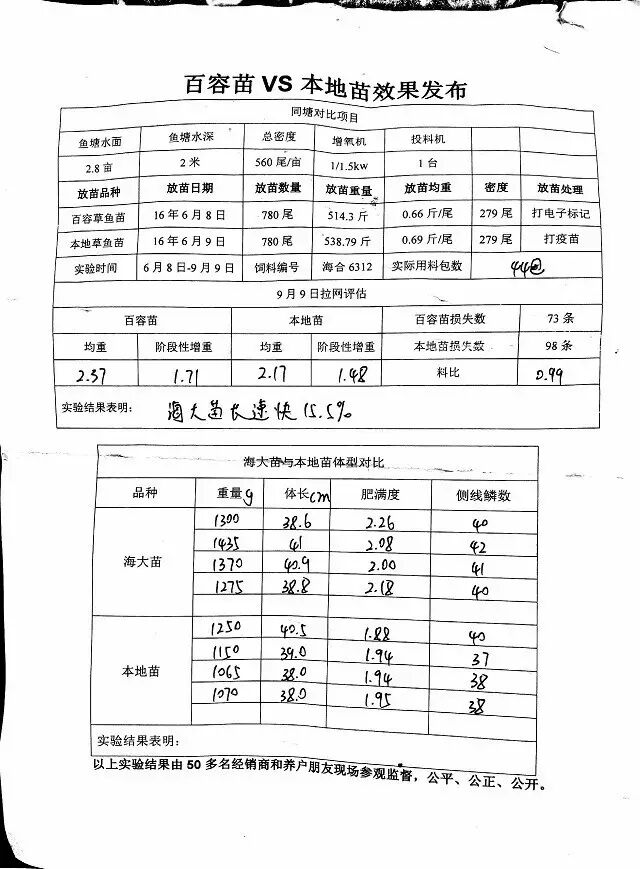 百容苗 VS 本地苗效果发布
同塘对比项目
鱼塘水面 鱼塘水深 总密度 增氧机 投料机
2.8 亩 2 米 560 尾/亩 1/1.5kw 1 台
放苗品种 放苗日期 放苗数量 放苗重量 放苗均重 密度 放苗处理
百容草鱼苗 16 年 6 月 8 日 780 尾 514.3 斤 0.66 斤/尾 279 尾 打电子标记
本地草鱼苗 16 年 6 月 9 日 780 尾 538.79 斤 0.69 斤/尾 279 尾 打疫苗
实验时间 6 月 8 日-9 月 9 日 饲料编号 海合 6312 实际用料包数 44包
9 月 9 日拉网评估
百容苗 本地苗 百容苗损失数 73 条
均重 阶段性增重 均重 阶段性增重 本地苗损失数 98 条
2.37 1.71 2.17 1.48 料比 0.99
实验结果表明： 海大苗长速快15.5%
海大苗与本地苗体型对比
品种 重量g 体长cm 肥满度 侧线鳞数
海大苗
1300 38.6 2.26 40
1435 41 2.08 42
1370 40.9 2.00 41
1275 38.8 2.18 40
本地苗
1250 40.5 1.88 40
1150 39.0 1.94 37
1065 38.0 1.94 38
1070 38.0 1.95 38
实验结果表明：
以上实验结果由 50 多名经销商和养户朋友现场参观监督，公平、公正、公开。